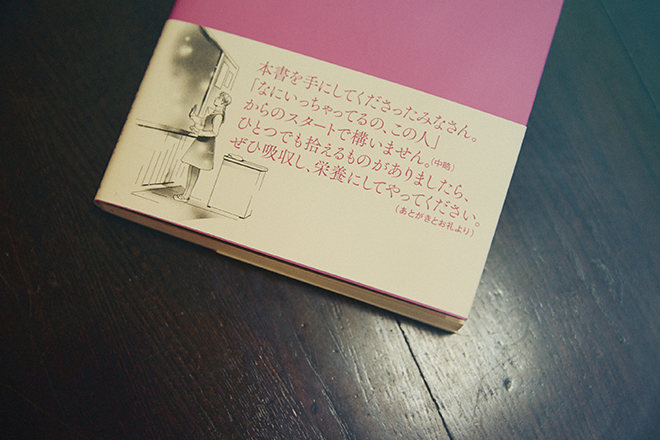 本書を手にしてくださったみなさん。
「なにいっちゃってるの、この人」
からのスタートで構いません。(中略)
ひとつでも拾えるものがありましたら、
ぜひ吸収し、栄養にしてやってください。
(あとがきとお礼より)